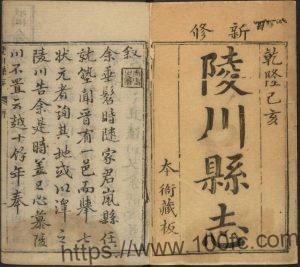 乾隆己亥
新修
陵川縣志
本衙藏板
叙
余垂髫時隨家君嵐縣任
就塾聞晉有一邑而舉七
狀元者詢其地或以澤之
陵川告余是時蓋已心慕陵
川不置云越十餘年奉
https://www.100fc.com